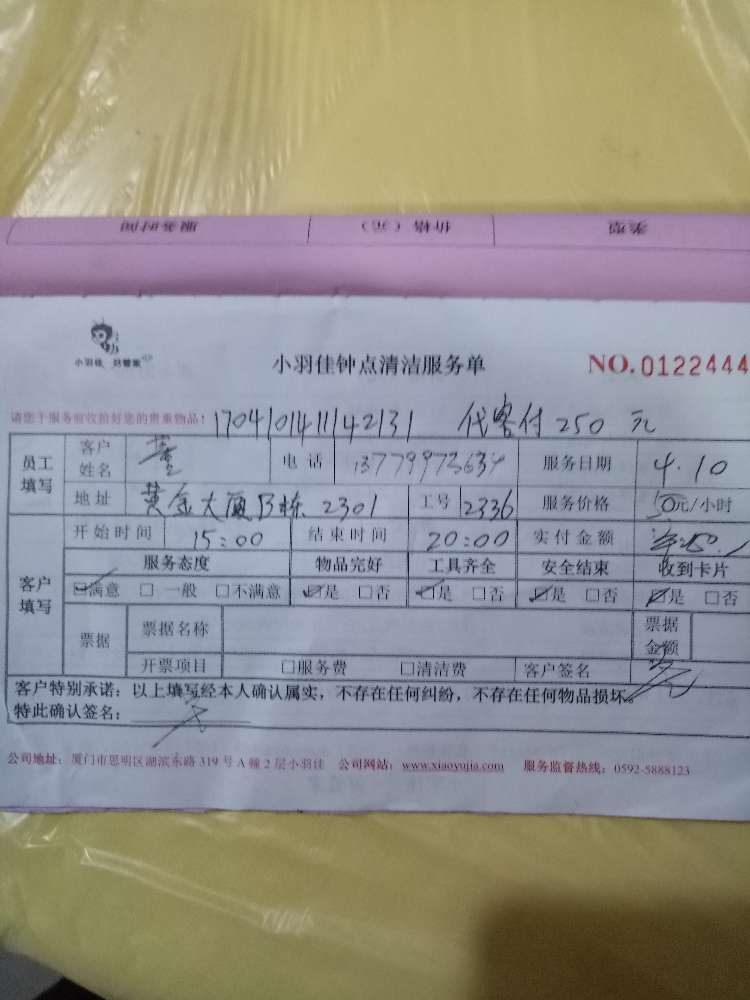 服务时间 价格（元） 类型
小羽佳 好管家
小羽佳钟点清洁服务单 NO.0122444
请您于服务前收拾好您的贵重物品！ 1704101411142131 代客付 250 元
员工填写 客户姓名 董 电话 13779973634 服务日期 4.10
地址 黄金大厦B栋 2301 工号 2336 服务价格 50元/小时
客户填写 开始时间 15:00 结束时间 20:00 实付金额
服务态度 物品完好 工具齐全 安全结束 收到卡片
☑满意 □一般 □不满意 ☑是 □否 ☑是 □否 ☑是 □否 ☑是 □否
票据 票据名称 票据金额
开票项目 □服务费 □清洁费 客户签名
客户特别承诺：以上填写经本人确认属实，不存在任何纠纷，不存在任何物品损坏。
特此确认签名：
公司地址：厦门市思明区湖滨东路 319 号 A 幢 2 层小羽佳 公司网站：www.xiaoyujia.com 服务监督热线：0592-5888123